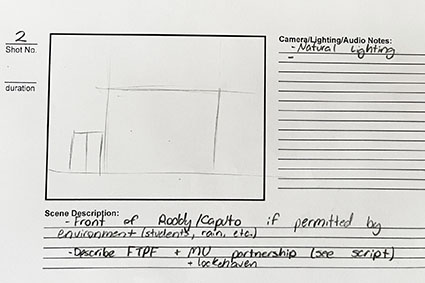 2
Shot No.
duration
Camera/Lighting/Audio Notes:
- Natural Lighting
-
Scene Description:
- Front of Roddy/Caputo if permitted by
environment (students, rain, etc.)
- Describe FTPF + MU partnership (see script)
+ lockehaven